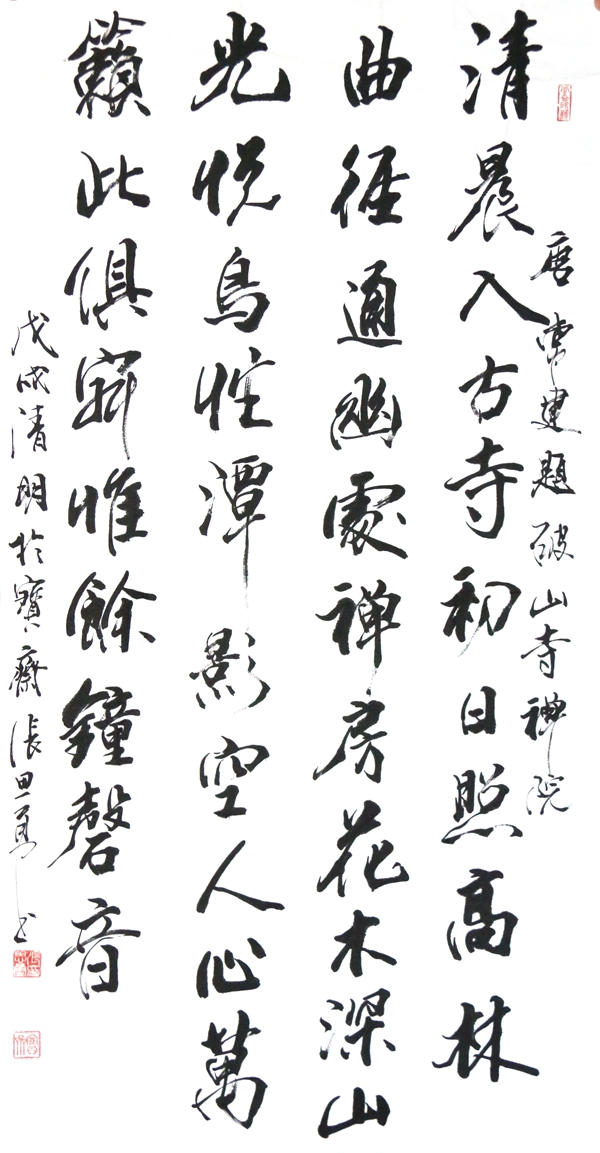 唐常建題破山寺禅院
清晨入古寺初日照高林
曲徑通幽處禅房花木深山
光悦鳥性潭影空人心萬
籟此俱寂惟餘鐘磬音
戊戌清明於寶齋張思勇书